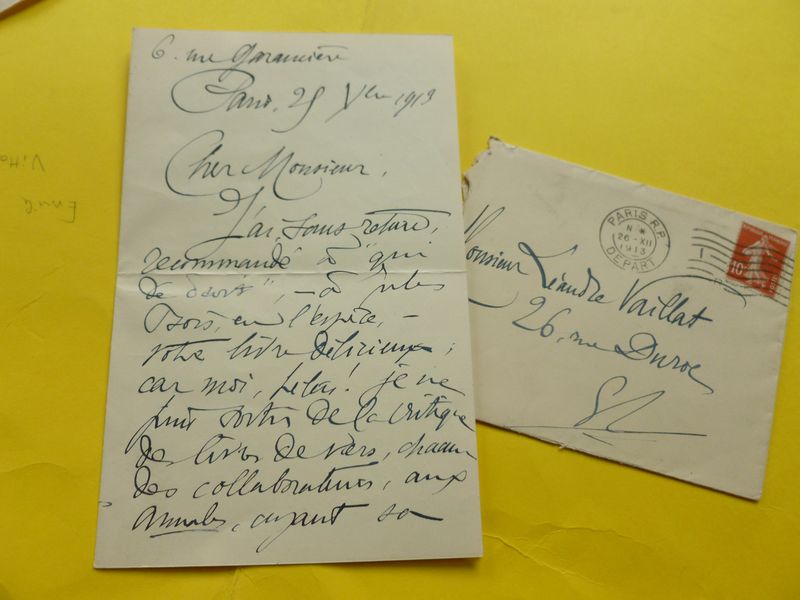 6. rue Garancière
Paris, 25 Xbre 1913
Cher Monsieur,
J'ai, sans retard,
recommandé à "qui
de droit", – à Jules
Bois, en l'espèce, –
votre livre délicieux ;
car moi, hélas ! je ne
puis sortir de la critique
des livres de vers, chacun
des collaborateurs, aux
Annales, ayant sa
PARIS R.P.
N *
26 - XII
1913
DEPART
10
Monsieur Léandre Vaillat
26, rue Duroc
Emile